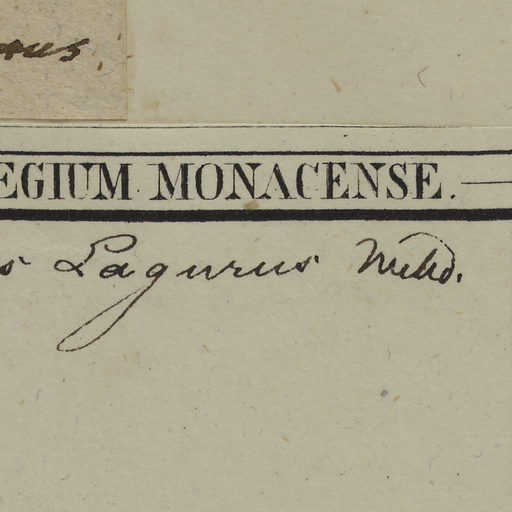 EGIUM MONACENSE.
s Lagurus Willd.